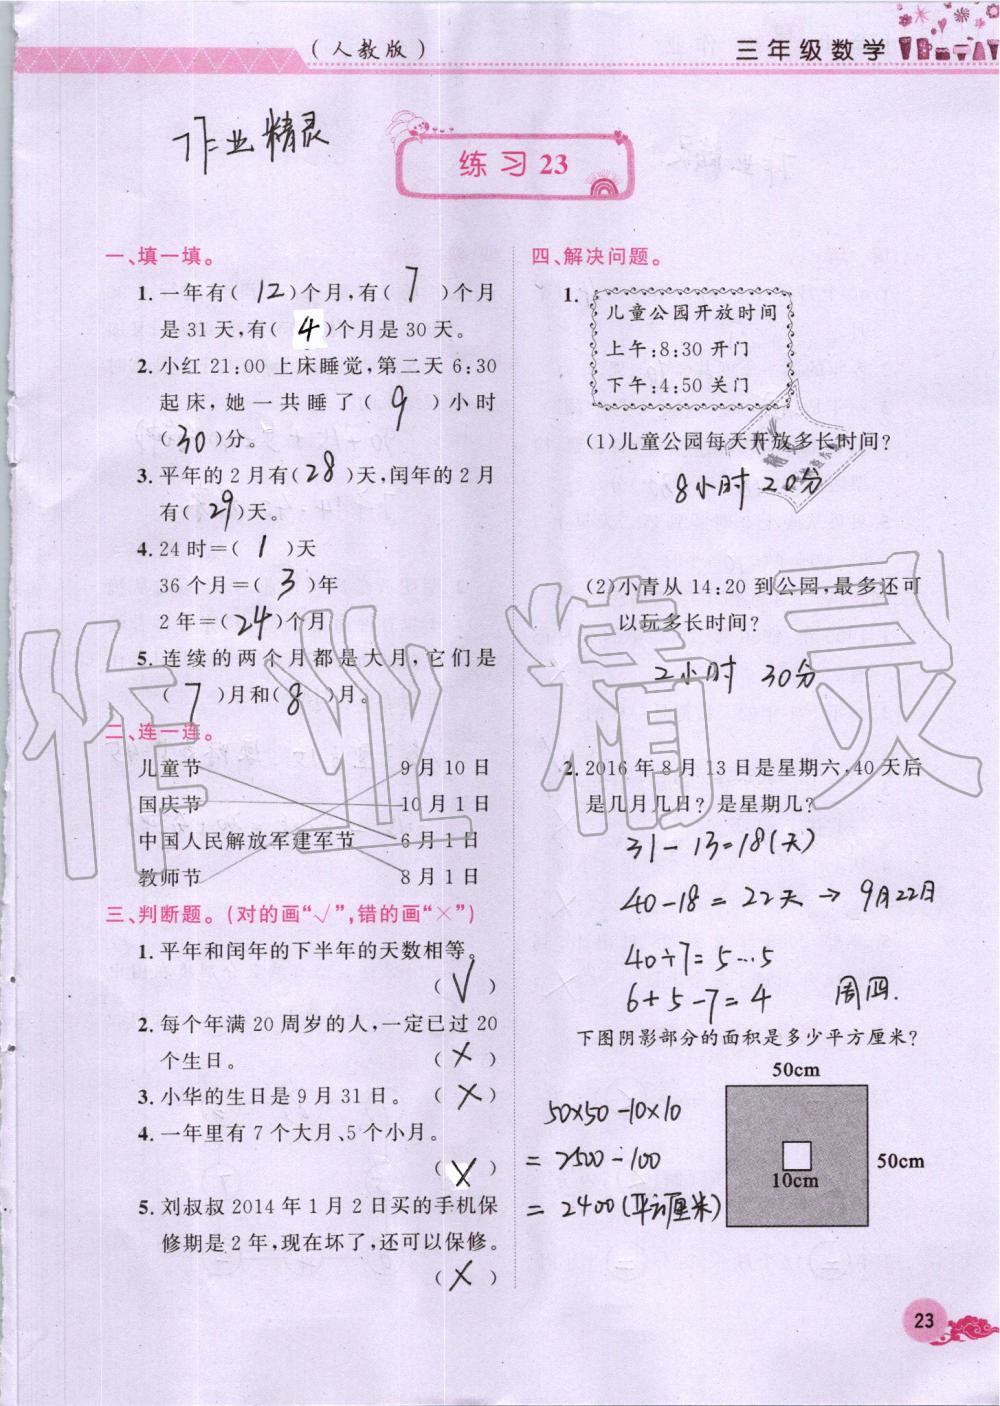 (人教版)
三年级数学
作业精灵
练习 23
一、填一填。
1. 一年有( 12 )个月,有( 7 )个月
是 31 天,有( 4 )个月是 30 天。
2. 小红 21:00 上床睡觉,第二天 6:30
起床,她一共睡了( 9 )小时
( 30 )分。
3. 平年的 2 月有( 28 )天,闰年的 2 月
有( 29 )天。
4. 24 时=( 1 )天
36 个月=( 3 )年
2 年=( 24 )个月
5. 连续的两个月都是大月,它们是
( 7 )月和( 8 )月。
二、连一连。
儿童节 9 月 10 日
国庆节 10 月 1 日
中国人民解放军建军节 6 月 1 日
教师节 8 月 1 日
三、判断题。(对的画“√”,错的画“×”)
1. 平年和闰年的下半年的天数相等。
( √ )
2. 每个年满 20 周岁的人,一定已过 20
个生日。 ( × )
3. 小华的生日是 9 月 31 日。 ( × )
4. 一年里有 7 个大月、5 个小月。
( × )
5. 刘叔叔 2014 年 1 月 2 日买的手机保
修期是 2 年,现在坏了,还可以保修。
( × )
四、解决问题。
1. 儿童公园开放时间
上午:8:30 开门
下午:4:50 关门
(1)儿童公园每天开放多长时间?
8小时 20分
(2)小青从 14:20 到公园,最多还可
以玩多长时间?
2小时 30分
2. 2016 年 8 月 13 日是星期六,40 天后
是几月几日? 是星期几?
31-13=18(天)
40-18=22天→9月22日
40÷7=5…5
6+5-7=4 周四.
下图阴影部分的面积是多少平方厘米?
50cm
50×50-10×10
=2500-100
=2400(平方厘米)
50cm
10cm
作业精灵
23